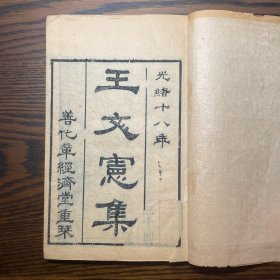 光緒十八年
王文憲集
善化章經濟堂重栞